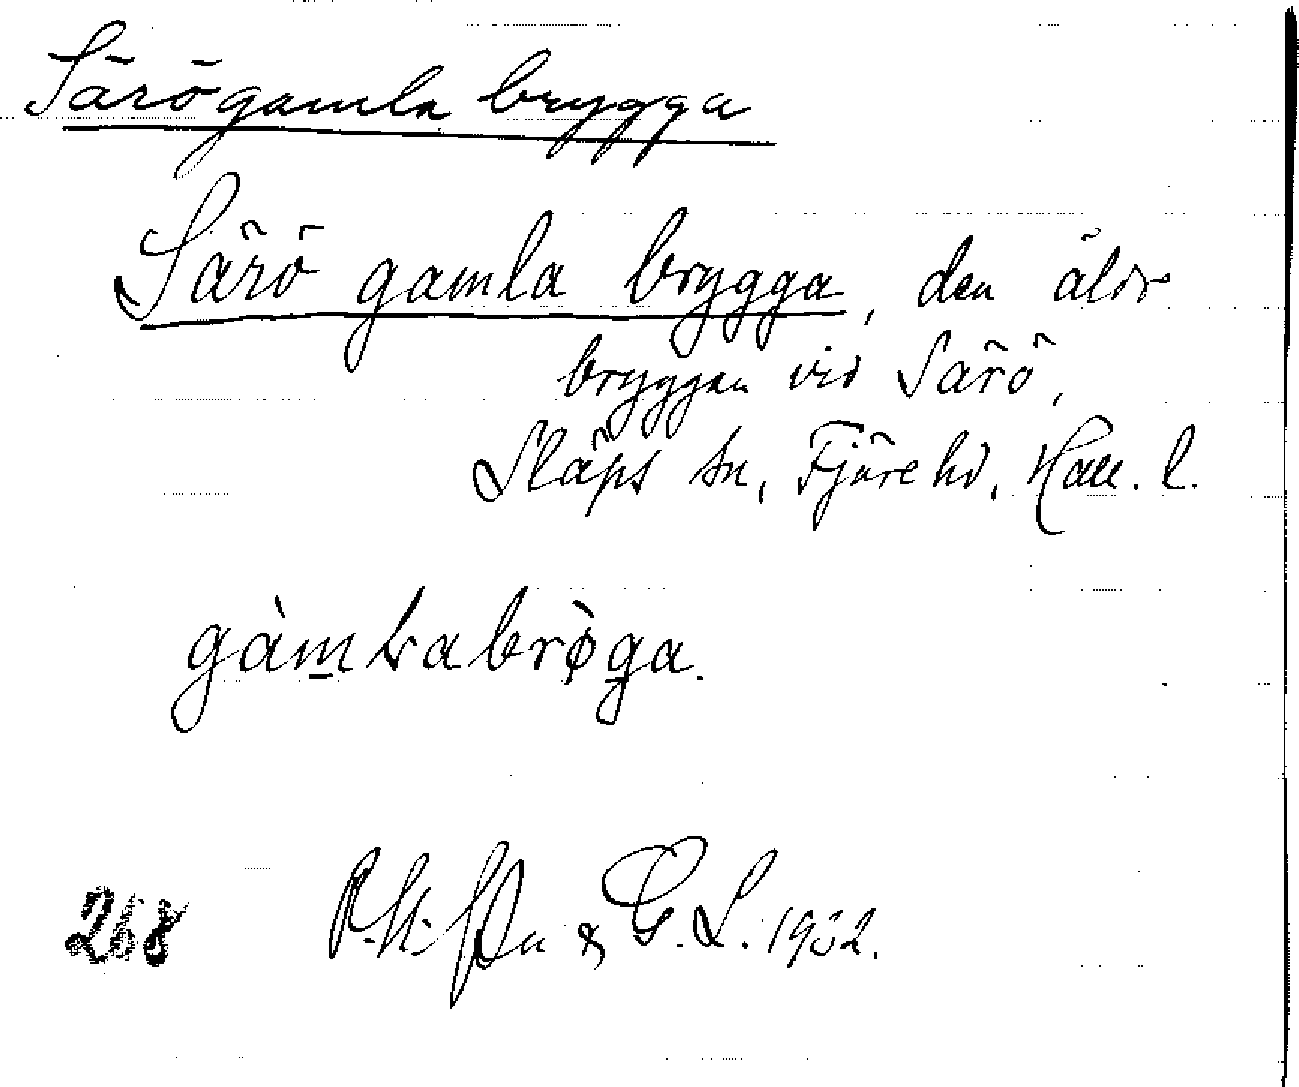 Särö gamla brygga
Särö gamla brygga, den äldr
bryggan vid Särö,
Släps sn, Fjäre hd, Hall. l.
gàmlabrø̀ga.
268 & G. L. 1932.